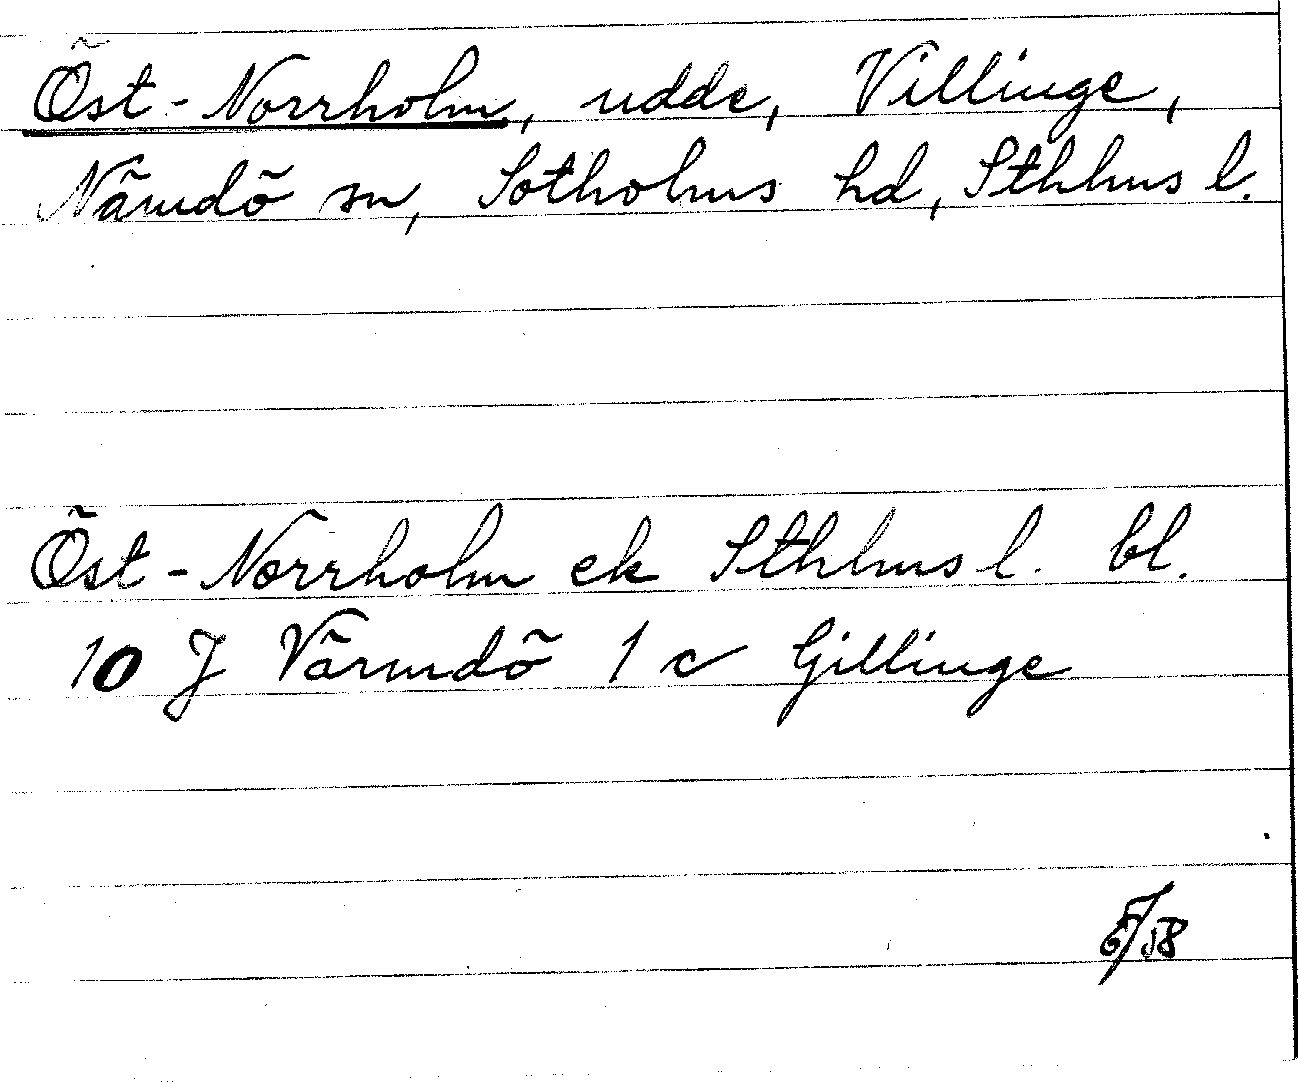 Öst-Norrholm, udde, Villinge,
Nämdö sn, Sotholms hd, Sthlms l.
Öst-Norrholm ek Sthlms l. bl.
10 J Värmdö 1 c Gillinge